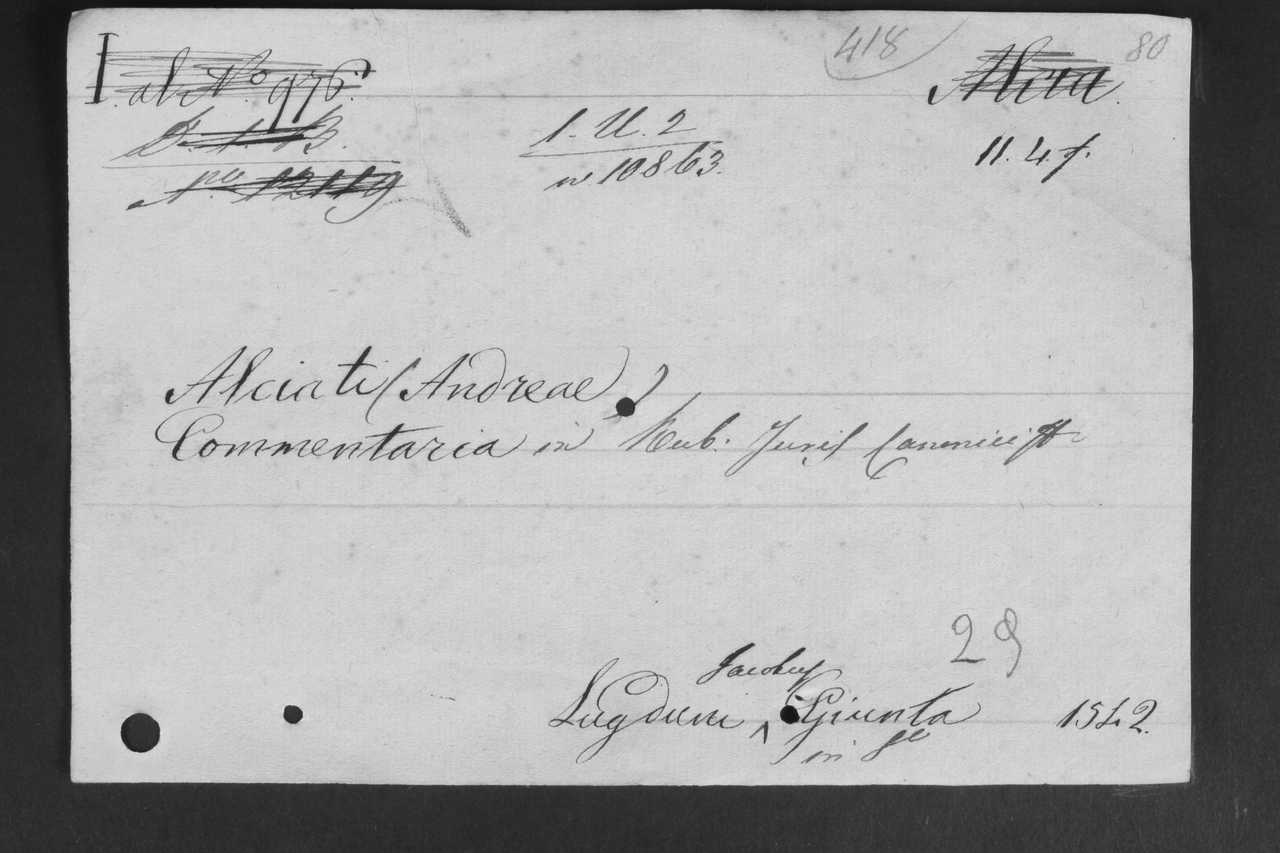 418
80
I. al No 976.
Alcia.
1. U. 2
no 10863.
11. 4. f.
No 12119
Alciati (Andreae)
Commentaria in Rub. Juris Canonici
29
Jacobus
Lugduni Giunta 1542.
in 8o